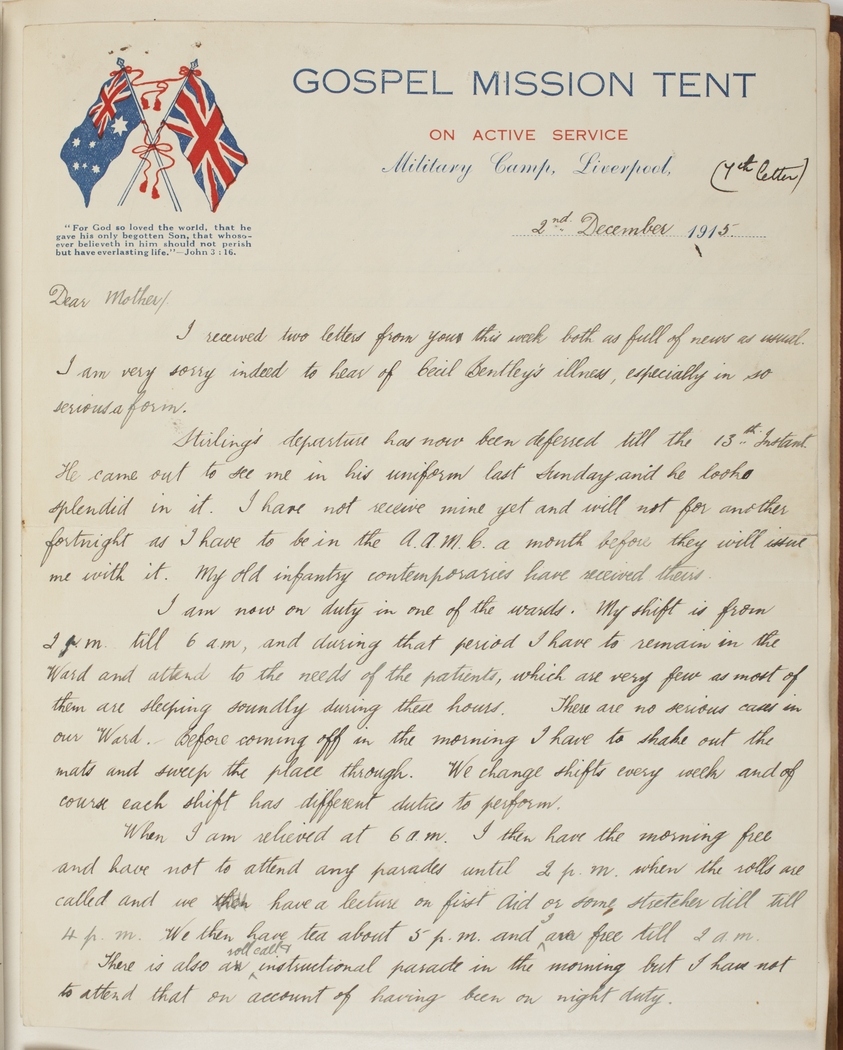 GOSPEL MISSION TENT
ON ACTIVE SERVICE
Military Camp, Liverpool,
(7th letter)
"For God so loved the world, that he
gave his only begotten Son, that whoso-
ever believeth in him should not perish
but have everlasting life."—John 3 : 16.
2nd December 1915.
Dear Mother/
I received two letters from you this week both as full of news as usual.
I am very sorry indeed to hear of Cecil Bentley's illness, especially in so
serious a form.
Stirling's departure has now been deferred till the 13th Instant.
He came out to see me in his uniform last Sunday and he looks
splendid in it. I have not receive mine yet and will not for another
fortnight as I have to be in the A.A.M.C. a month before they will issue
me with it. My old infantry contemporaries have received theirs.
I am now on duty in one of the wards. My shift is from
2 p.m. till 6 am, and during that period I have to remain in the
Ward and attend to the needs of the patients, which are very few as most of
them are sleeping soundly during these hours. There are no serious cases in
our Ward. - Before coming off in the morning I have to shake out the
mats and sweep the place through. We change shifts every week and of
course each shift has different duties to perform.
When I am relieved at 6 a.m. I then have the morning free
and have not to attend any parades until 2 p.m. when the rolls are
called and we then have a lecture on first aid or some stretcher dill till
4 p.m. We then have tea about 5 p.m. and I are free till 2 am.
There is also a roll call & instructional parade in the morning but I have not
to attend that on account of having been on night duty.